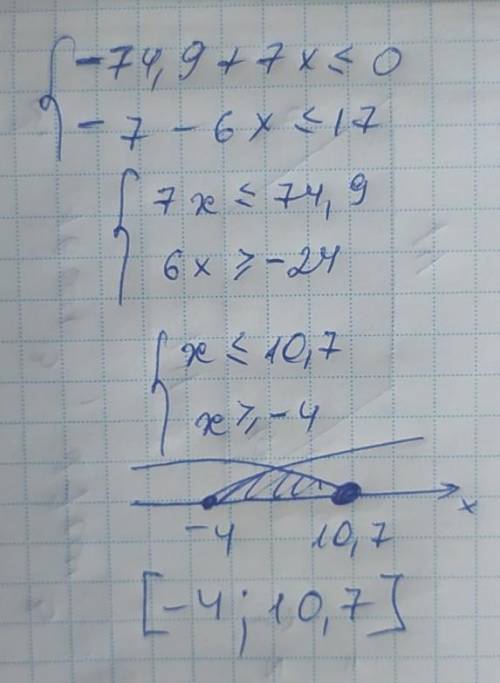 { -74,9 + 7x ≤ 0
-7 - 6x ≤ 17
{ 7x ≤ 74,9
6x ≥ -24
{ x ≤ 10,7
x ≥ -4
x
-4 10,7
[-4; 10,7]